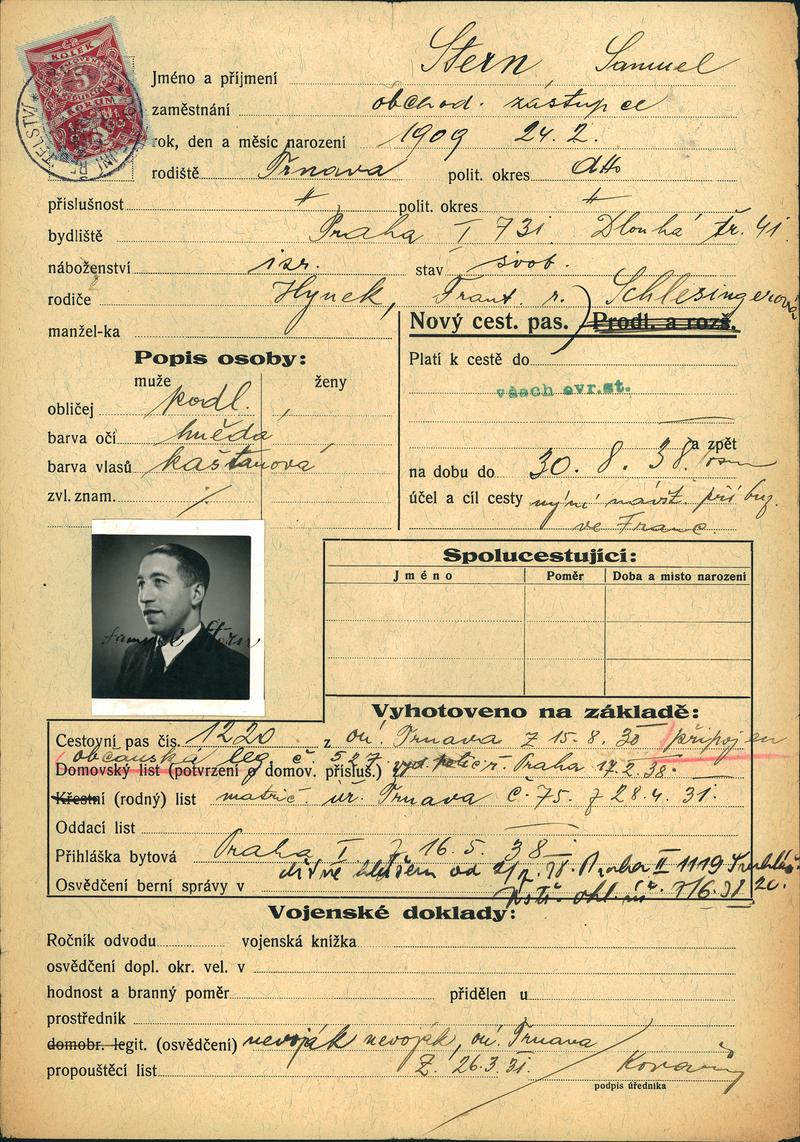 KOLEK
5
KORUN
Jméno a příjmení Stern, Samuel
zaměstnání obchod. zástupce
rok, den a měsíc narození 1909 24.2.
rodiště Trnava polit. okres dtto
příslušnost " polit. okres "
bydliště Praha I 731 Dlouhá tř. 41
náboženství isr. stav svob.
rodiče Hynek, Frant. r. Schlesingerová
manžel-ka
Nový cest. pas. Prodl. a rozš.
Popis osoby:
muže ženy
obličej podl.
barva očí hnědá
barva vlasů kaštanová
zvl. znam. /
Platí k cestě do
všech evr.st.
a zpět
na dobu do 30. 8. 38.
účel a cíl cesty nyní návšt. příbuz.
ve Franc.
Samuel Stern
Spolucestující:
Jméno Poměr Doba a místo narození
Vyhotoveno na základě:
Cestovní pas čís. 1220 z oú. Trnava z 15.8.30 připojen
občanská leg. č. 527 Praha 17.2.38.
Domovský list (potvrzení o domov. přísluš.)
Křestní (rodný) list matric. úř. Trnava č. 75. z 28.4.31.
Oddací list
Přihláška bytová Praha I z 16.5.38
dříve hlášen od Praha II 1119
Osvědčení berní správy v
Vojenské doklady:
Ročník odvodu vojenská knížka
osvědčení dopl. okr. vel. v
hodnost a branný poměr přidělen u
prostředník
domobr. legit. (osvědčení) nevoják nevoják, oú. Trnava
propouštěcí list Z. 26.3.31.
podpis úředníka